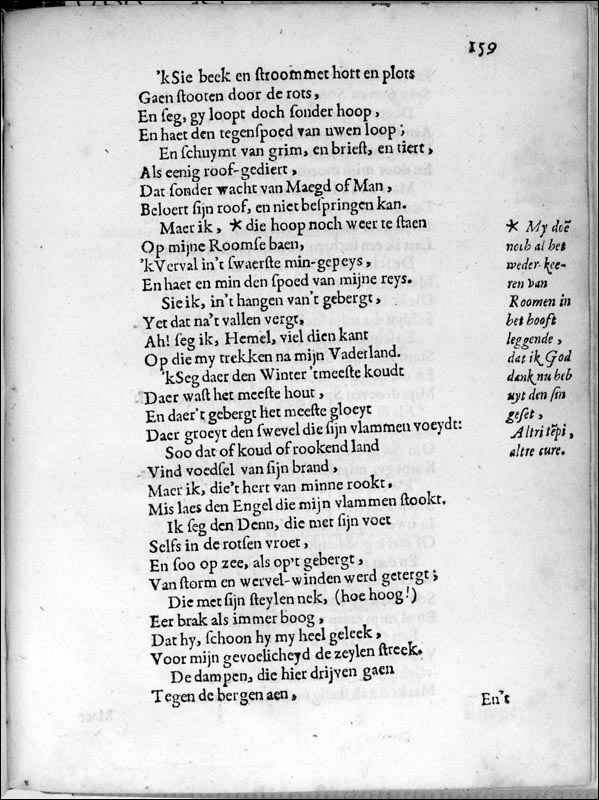 159
'kSie beek en stroom met hort en plots
Gaen stooten door de rots,
En seg, gy loopt doch sonder hoop,
En haet den tegenspoed van uwen loop;
En schuymt van grim, en briest, en tiert,
Als eenig roof-gediert,
Dat sonder wacht van Maegd of Man,
Beloert sijn roof, en niet bespringen kan.
Maer ik, * die hoop noch weer te staen
Op mijne Roomse baen,
'kVerval in't swaerste min-gepeys,
En haet en min den spoed van mijne reys.
Sie ik, in't hangen van't gebergt,
Yet dat na't vallen vergt,
Ah! seg ik, Hemel, viel dien kant
Op die my trekken na mijn Vaderland.
'kSeg daer den Winter 'tmeeste koudt
Daer wast het meeste hout,
En daer't gebergt het meeste gloeyt
Daer groeyt den swevel die sijn vlammen voeydt:
Soo dat of koud of rookend land
Vind voedsel van sijn brand,
Maer ik, die't hert van minne rookt,
Mis laes den Engel die mijn vlammen stookt.
Ik seg den Denn, die met sijn voet
Selfs in de rotsen vroet,
En soo op zee, als op't gebergt,
Van storm en wervel-winden werd getergt;
Die met sijn steylen nek, (hoe hoog!)
Eer brak als immer boog,
Dat hy, schoon hy my heel geleek,
Voor mijn gevoelicheyd de zeylen streek.
De dampen, die hier drijven gaen
Tegen de bergen aen,
En't
* My doẽ
noch al het
weder-kee-
ren van
Roomen in
het hooft
leggende,
dat ik God
dank nu heb
uyt den sin
geset,
Altri tẽpi,
altre cure.